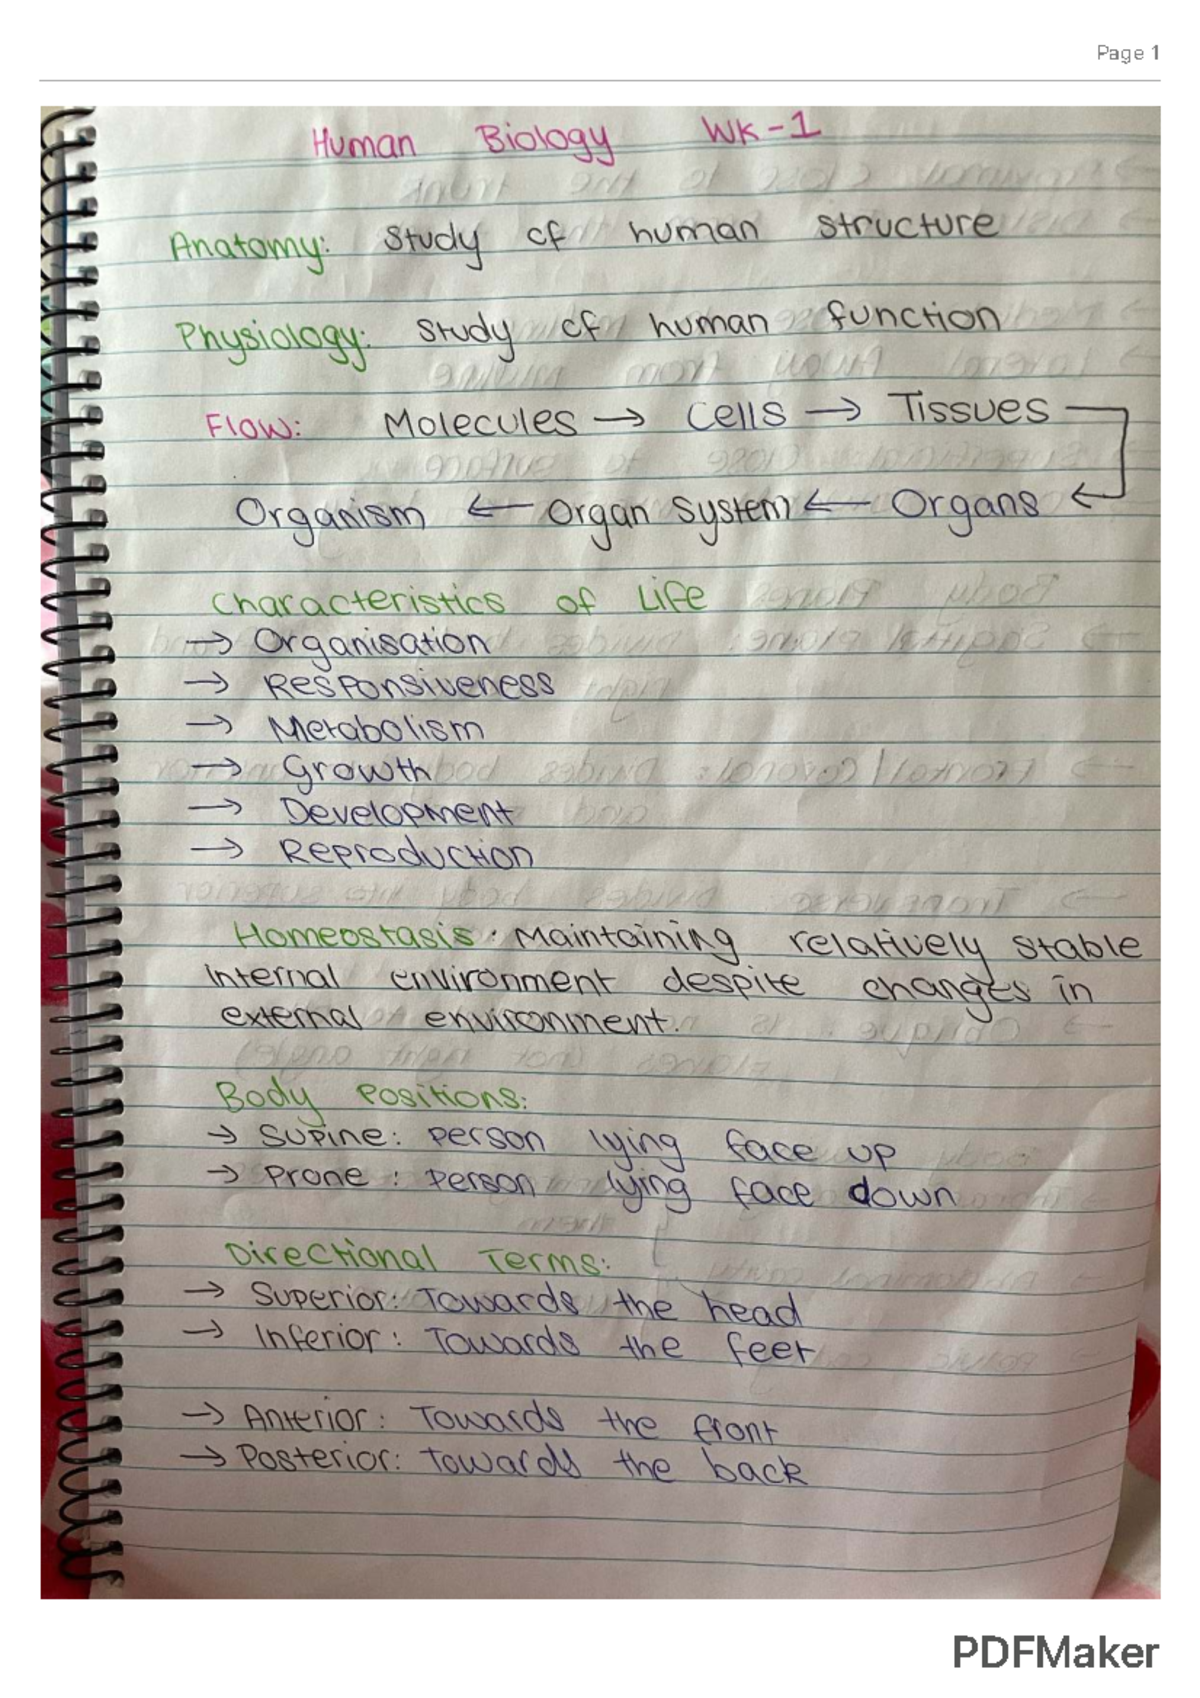 Page 1
Human Biology WK-1
Anatomy: Study of human structure
Physiology: Study of human function
Flow: Molecules → Cells → Tissues
Organism ← Organ System ← Organs
Characteristics of Life
→ Organisation
→ Responsiveness
→ Metabolism
→ Growth
→ Development
→ Reproduction
Homeostasis: Maintaining relatively stable
internal environment despite changes in
external environment.
Body Positions:
→ Supine: Person lying face up
→ Prone: Person lying face down
Directional Terms:
→ Superior: Towards the head
→ Inferior: Towards the feet
→ Anterior: Towards the front
→ Posterior: Towards the back
PDFMaker